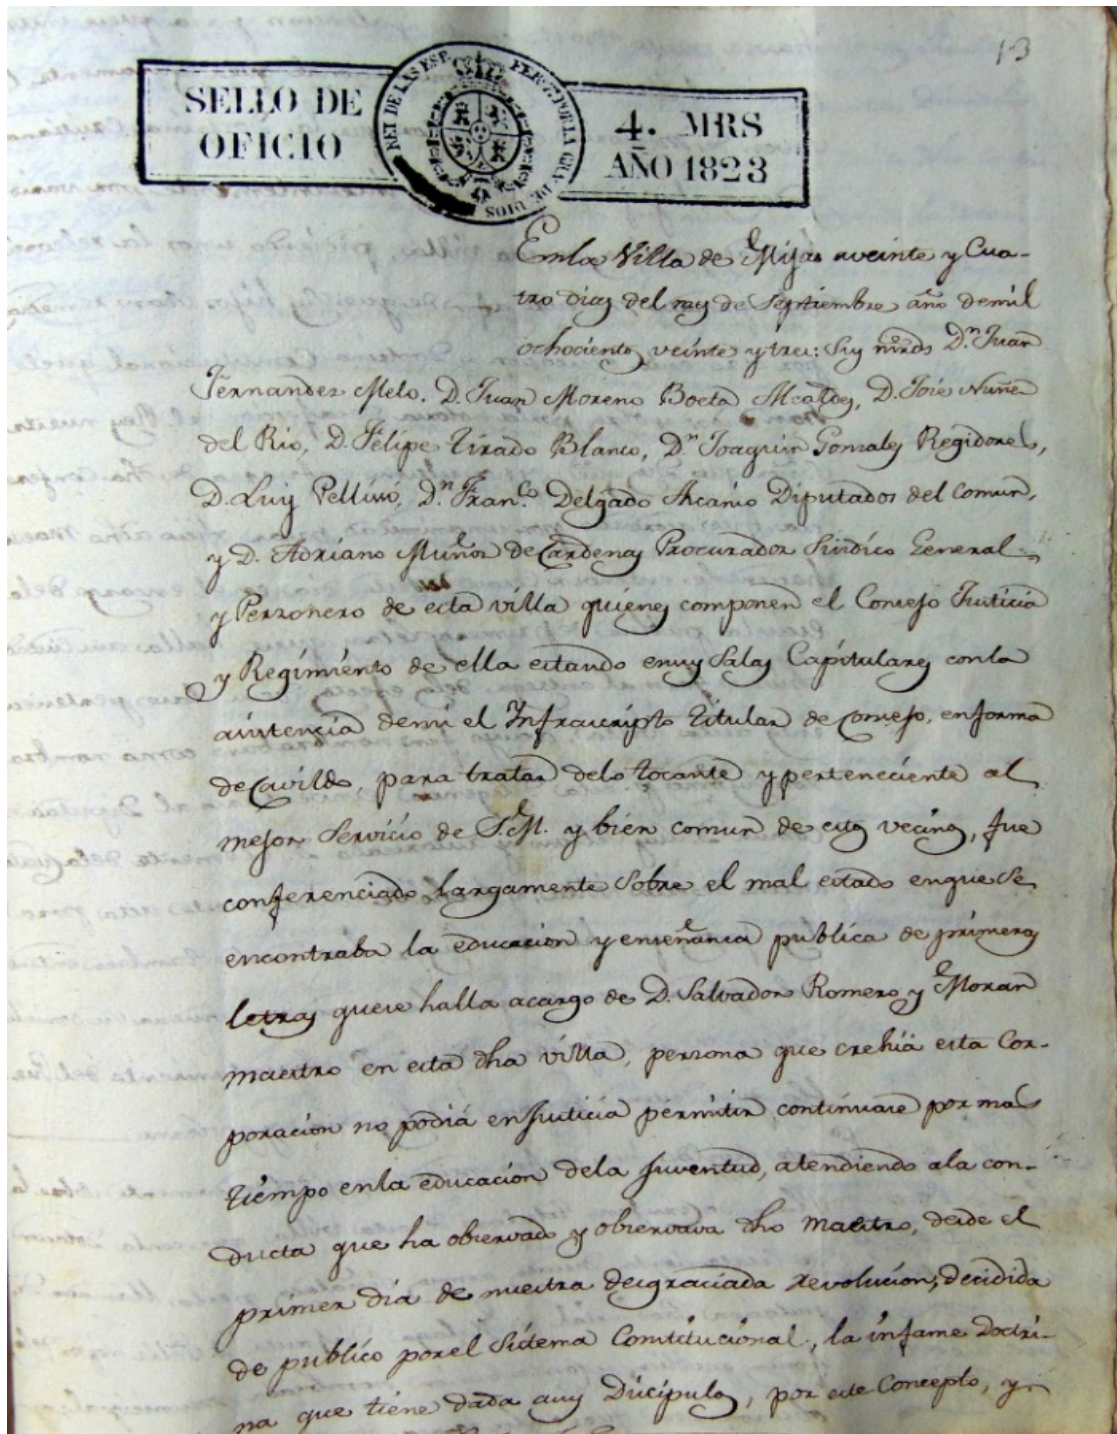 13
SELLO DE
OFICIO
4. MRS
AÑO 1823
REY DE LAS ESP. FER. 7.º POR LA GRA. DE DIOS
En la Villa de Mijas a veinte y Cua-
tro dias del mes de Septiembre año de mil
ochocientos veinte y tres: Sus mrds Dn. Juan
Fernandez Melo, D. Juan Moreno Boeta Alcaldes, D. Jose Nuñez
del Rio, D. Felipe Tirado Blanco, Dn. Joaquin Gonzales Regidores,
D. Luis Pellisó, Dn. Franco. Delgado Ascanio Diputados del Comun,
y D. Adriano Muñoz de Cardenas Procurador Sindico General
y Perzonero de esta villa quienes componen el Consejo Justicia
y Regimiento de ella estando en sus Salas Capitulares con la
asistencia de mi el Infrascripto Titular de Consejo, en forma
de Cavildo, para tratar de lo tocante y perteneciente al
mejor Servicio de S.M. y bien comun de estos vecinos, fue
conferenciado largamente Sobre el mal estado en que Se
encontraba la educacion y enseñanza publica de primeras
letras que se halla a cargo de D. Salvador Romero y Moran
maestro en esta dha villa, perzona que crehia esta Cor-
poracion no podia en Justicia permitir continuase por mas
tiempo en la educacion de la Juventud, atendiendo a la con-
ducta que ha observado y observava dho Maestro, desde el
primer dia de nuestra desgraciada revolucion, decidida
de publico por el Sistema Constitucional, la infame Doctri-
na que tiene dada a sus Discipulos, por este Concepto, y